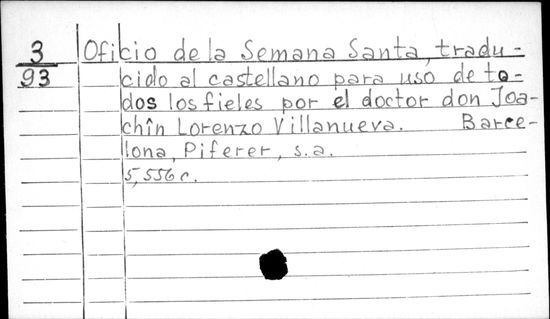 3
93
Oficio de la Semana Santa, tradu-
cido al castellano para uso de to-
dos los fieles por el doctor don Joa-
chîn Lorenzo Villanueva. Barce-
lona, Piferer, s.a.
5,556 c.